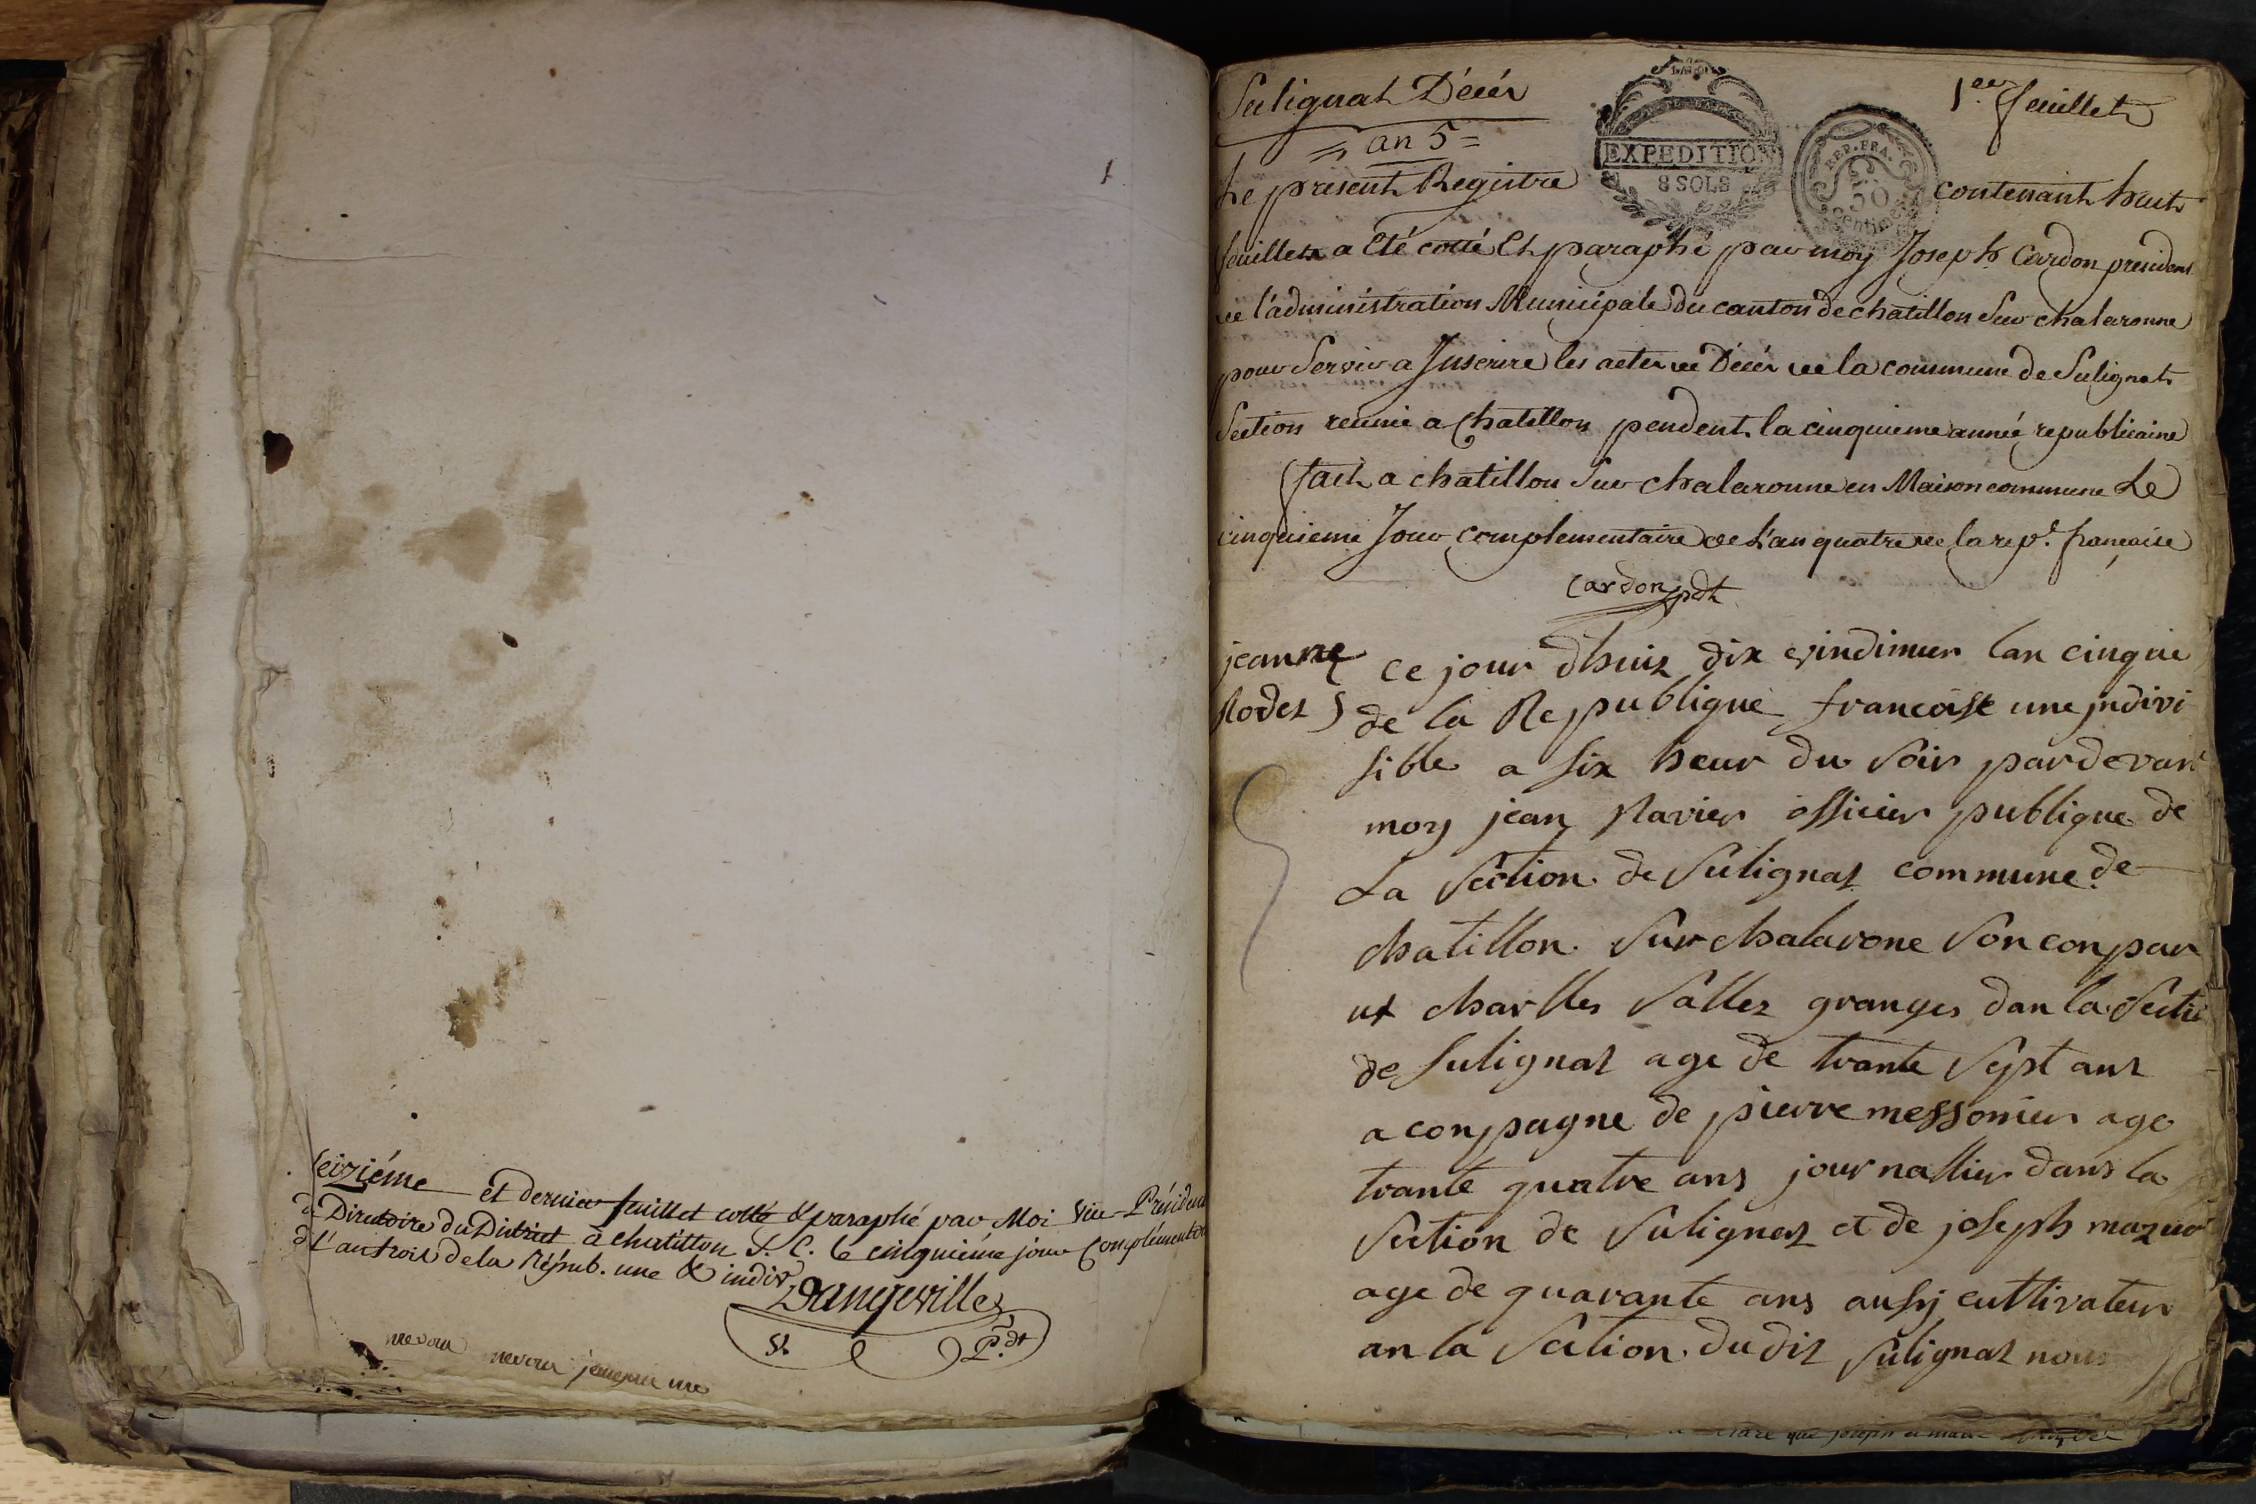 1
Seiziéme et dernier feuillet cotté & paraphé par Moi Vice-Président
du Directoire du District à chatillon S. C. le cinquiéme jour Complémentaire
de l'an trois de la Répub. une & indiv.
Dangeville
P.dt
Sulignat Décés
1er feuillet
= an 5 =
EXPEDITION
8 SOLS
REP. FRA.
50
centimes
Le present Registre contenant huit
feuillets a Eté cotté Et paraphé par moy Joseph Cardon president
de l'administration Municipale du canton de chatillon Sur chalaronne
pour Servir a Inscrire les actes de Décés de la commune de Sulignat
Section reunie a Chatillon pendent la cinquieme année republicaine
fait a chatillon Sur chalaronne en Maison commune Le
cinquieme Jour complementaire de L'an quatre de la rep.e française
Cardon pdt
jeanne
Rodet
ce jour dhuit dix vindimier lan cinquie
de la Republique francoise une jndivi
sible a six heur du soir pardevant
moy jean Ravier officier publique de
La Section de Sulignat commune de
chatillon Sur chalarone son conpar
ut charlles Sallet granges dan la Sectio
de Sulignat age de trante sept ans
a conpagne de pierre messonier age
trante quatre ans journallier dans la
Section de Sulignat et de joseph mazuir
age de quarante ans aussy cultivateur
an la Section dudit Sulignat nous